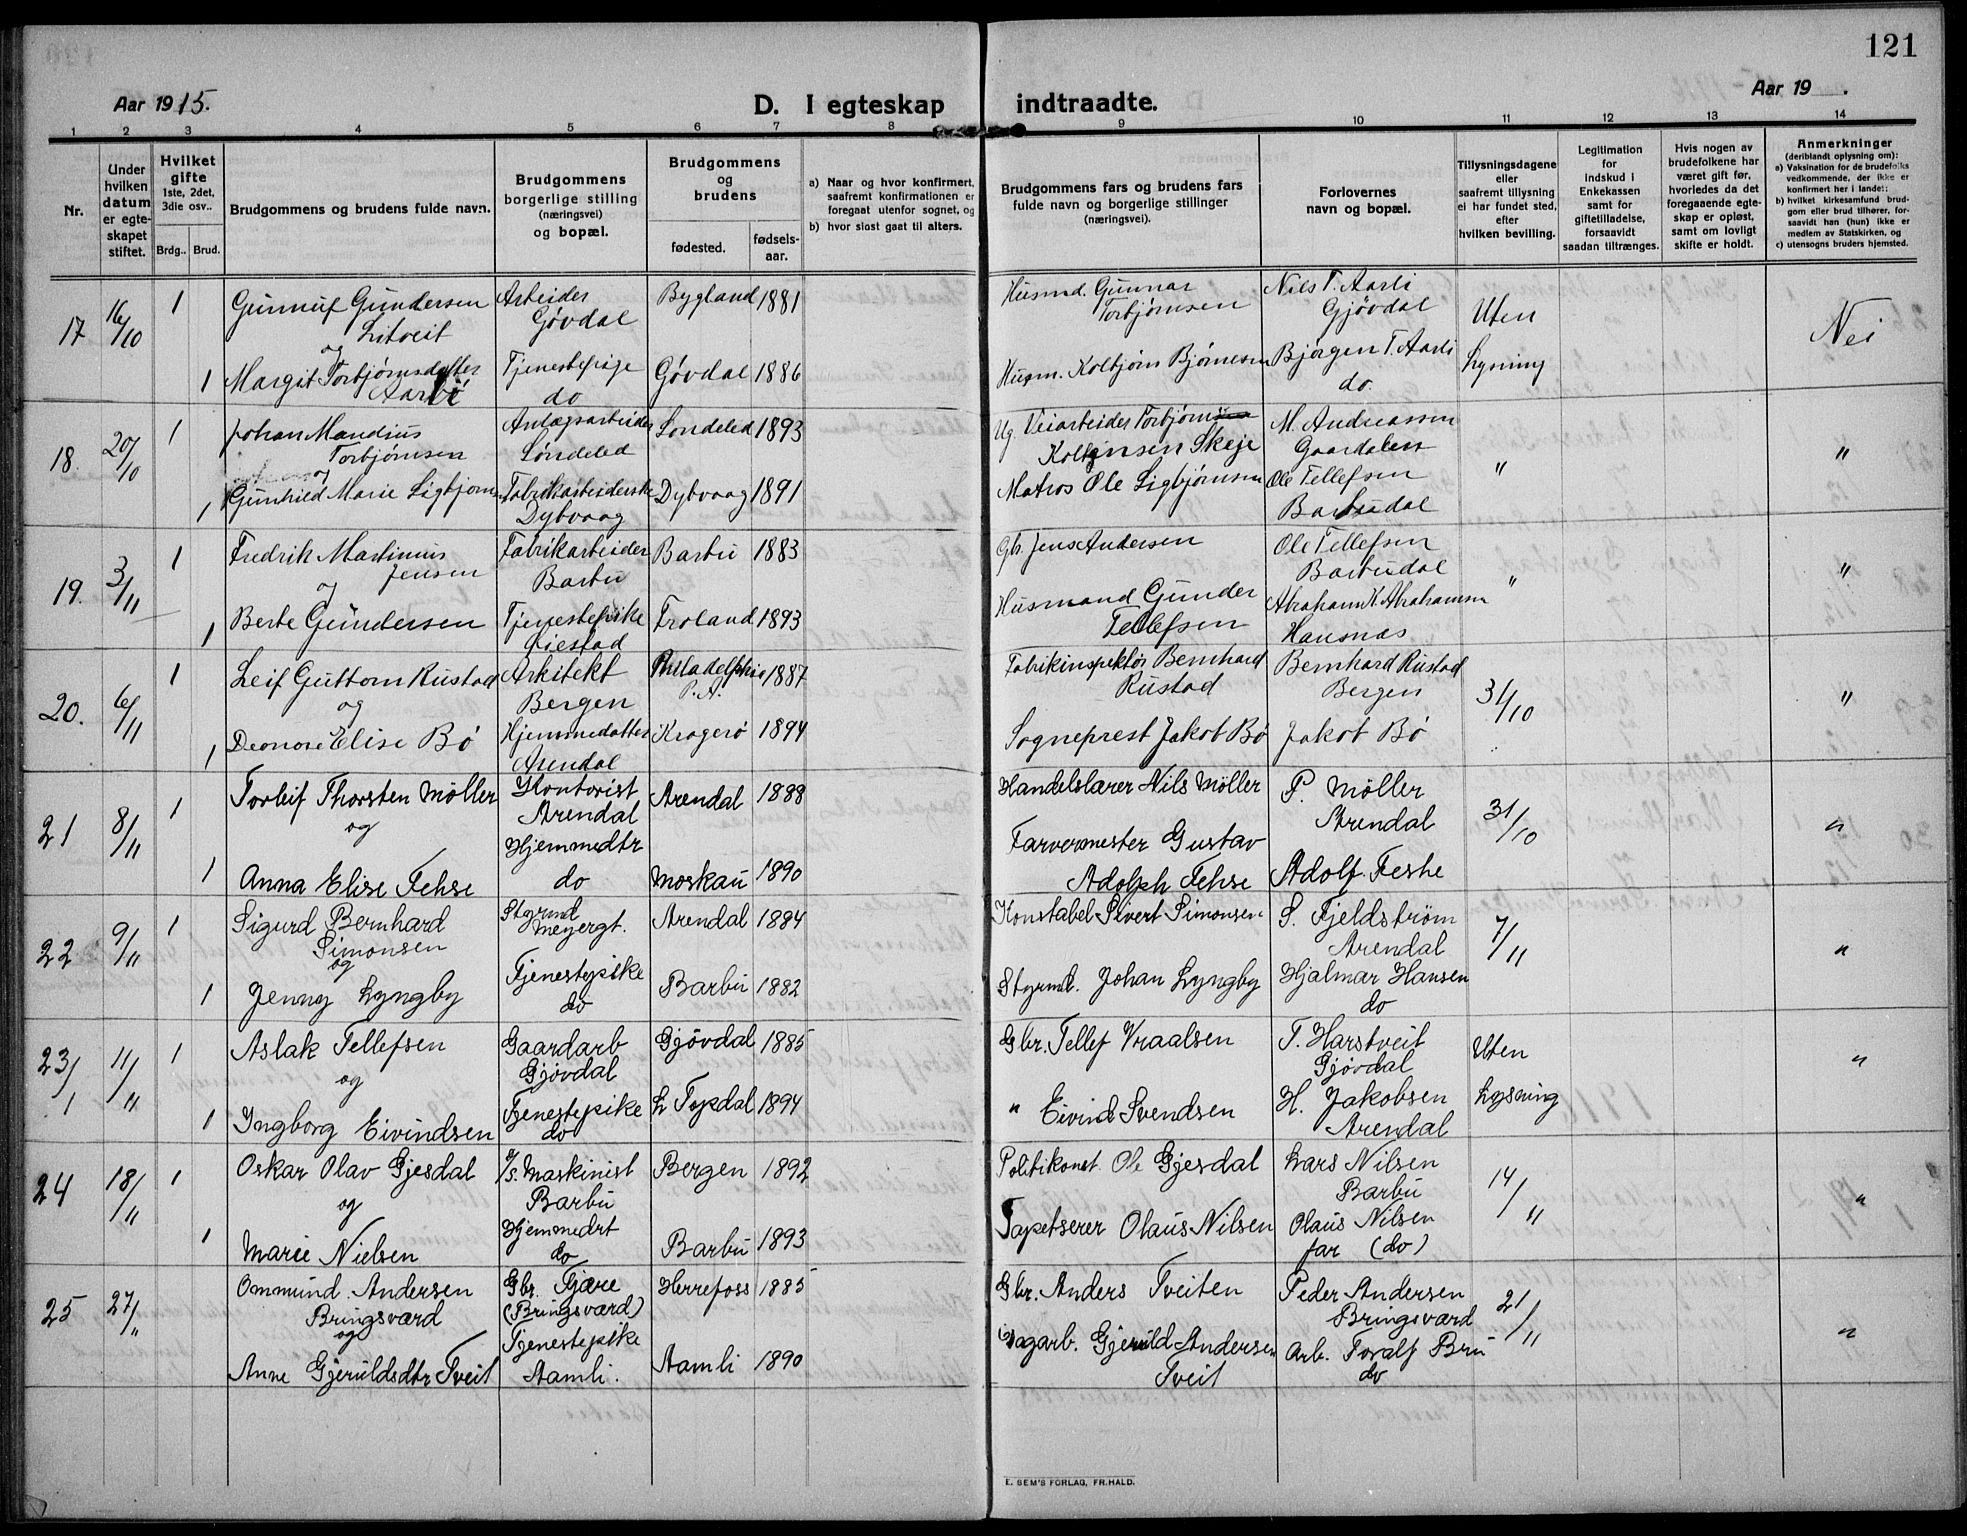 121
Aar 1915.
D. I egteskap indtraadte.
Aar 19 .
1 2 3 4 5 6 7 8 9 10 11 12 13 14
Nr.
Under hvilken datum er egte- skapet stiftet.
Hvilket gifte
1ste, 2det, 3die osv..
Brdg.. Brud.
Brudgommens og brudens fulde navn.
Brudgommens borgerlige stilling (næringsvei) og bopæl.
Brudgommens og brudens
fødested. fødsels- aar.
a) Naar og hvor konfirmert, saafremt konfirmationen er foregaat utenfor sognet, og
b) hvor sidst gaat til alters.
Brudgommens fars og brudens fars fulde navn og borgerlige stillinger (næringsvei).
Forlovernes navn og bopæl.
Tillysningsdagene eller saafremt tillysning ei har fundet sted, efter hvilken bevilling.
Legitimation for indskud i Enkekassen samt for giftetilladelse, forsaavidt saadan tiltrænges.
Hvis nogen av brudefolkene har været gift før, hvorledes da det foregaaende egte- skap er opløst, samt om lovligt skifte er holdt.
Anmerkninger
(deriblandt oplysning om):
a) Vaksination for de brudefolks vedkommende, der ikke er konfirmert her i landet;
b) hvilket kirkesamfund brud- gom eller brud tilhører, for- saavidt han (hun) ikke er medlem av Statskirken, og
c) utensogns bruders hjemsted.
17 16/10 1 Gunnuf Gundersen Arbeider Bygland 1881 Husmd. Gunnar Nils T. Aarli
Litveit Gövdal Torbjørnsen Gjøvdal Uten Nei
og
1 Margit Torbjørnsdatter Tjenestepige Gövdal 1886 Husm. Kolbjørn Bjørnesen Bjørgen T. Aarli Lysning
do do
18 20/10 1 Johan Mandius Anlægsarbeider Søndeled 1893 Ug. Veiarbeider Torbjørn M. Andreassen
Torbjørnsen Søndeled Skeje Gaardalen "
og
1 Gunhild Marie Sigbjørnsen Fabrikarbeiderske Dybvaag 1891 Matros Ole Sigbjørnsen Ole Tellefsen "
Dybvaag Barbudal
19. 3/11 1 Fredrik Martinius Fabrikarbeider Barbu 1883 Gbr. Jens Andersen Ole Tellefsen
Jensen Barbu Barbudal "
og "
1 Berte Gundersen Tjenestepike Froland 1893 Husmand Gunder Abraham K. Abrahamsen
Øiestad Tellefsen
20. 6/11 1 Leif Guttorm Rustad Arkitekt Philadelphia 1887 Fabrikinspektør Bernhard Bernhard Rustad
og Bergen P.A. Rustad Bergen 31/10 "
1 Elise Bö Hjemmedatter Kragerö 1894 Sogneprest Jakob Bö Jakob Bö
Arendal
21 8/11 1 Torleif Thorsten Möller Kontorist Arendal 1888 Handelslærer Nils Möller P. Möller
og Arendal Arendal 31/10 "
1 Anna Elise Fehse Hjemmedtr Moskau 1890 Farvermester Gustav Adolf Feshe
do Adolph Fehse
22 9/11 1 Sigurd Bernhard Styrmd Arendal 1884 Konstabel Sivert Simonsen S. Fjeldstrøm
Simonsen Arendal 7/11 "
og
1 Jenny Lyngby Tjenestepike Barbu 1882 Styrmd. Johan Lyngby Hjalmar Hansen
do do
23/1 11/11 1 Aslak Tellefsen Gaardarb Gjövdal 1885 Gbr. Tellef Vraalsen T. Harstveit Uten "
og Gjövdal Gjövdal
1 Ingborg Eivindsen Tjenestepike 1894 " Eivind Svendsen H. Jakobsen Lysning
do Arendal
24 18/11 1 Oskar Olav Gjesdal Maskinist Bergen 1892 Politikonst. Ole Gjesdal Lars Nilsen 14/11 "
og Barbu Barbu
1 Marie Nielsen Hjemmedrt Barbu 1893 Tapetserer Olaus Nilsen Olaus Nilsen
do far (do)
25 27/11 Ommund Andersen Gbr. Fjære Herrefoss 1885 Gbr. Anders Tveiten Peder Andersen 21/11 "
Bringsværd (Bringsværd) Bringsværd
og
Anne Gjeruldsdtr Tveit Tjenestepike Aamli 1890 Dagarb. Gjeruld Andersen Arb. Toralf Bru
Aamli. Tveit do
E. SEM'S FORLAG, FR.HALD.